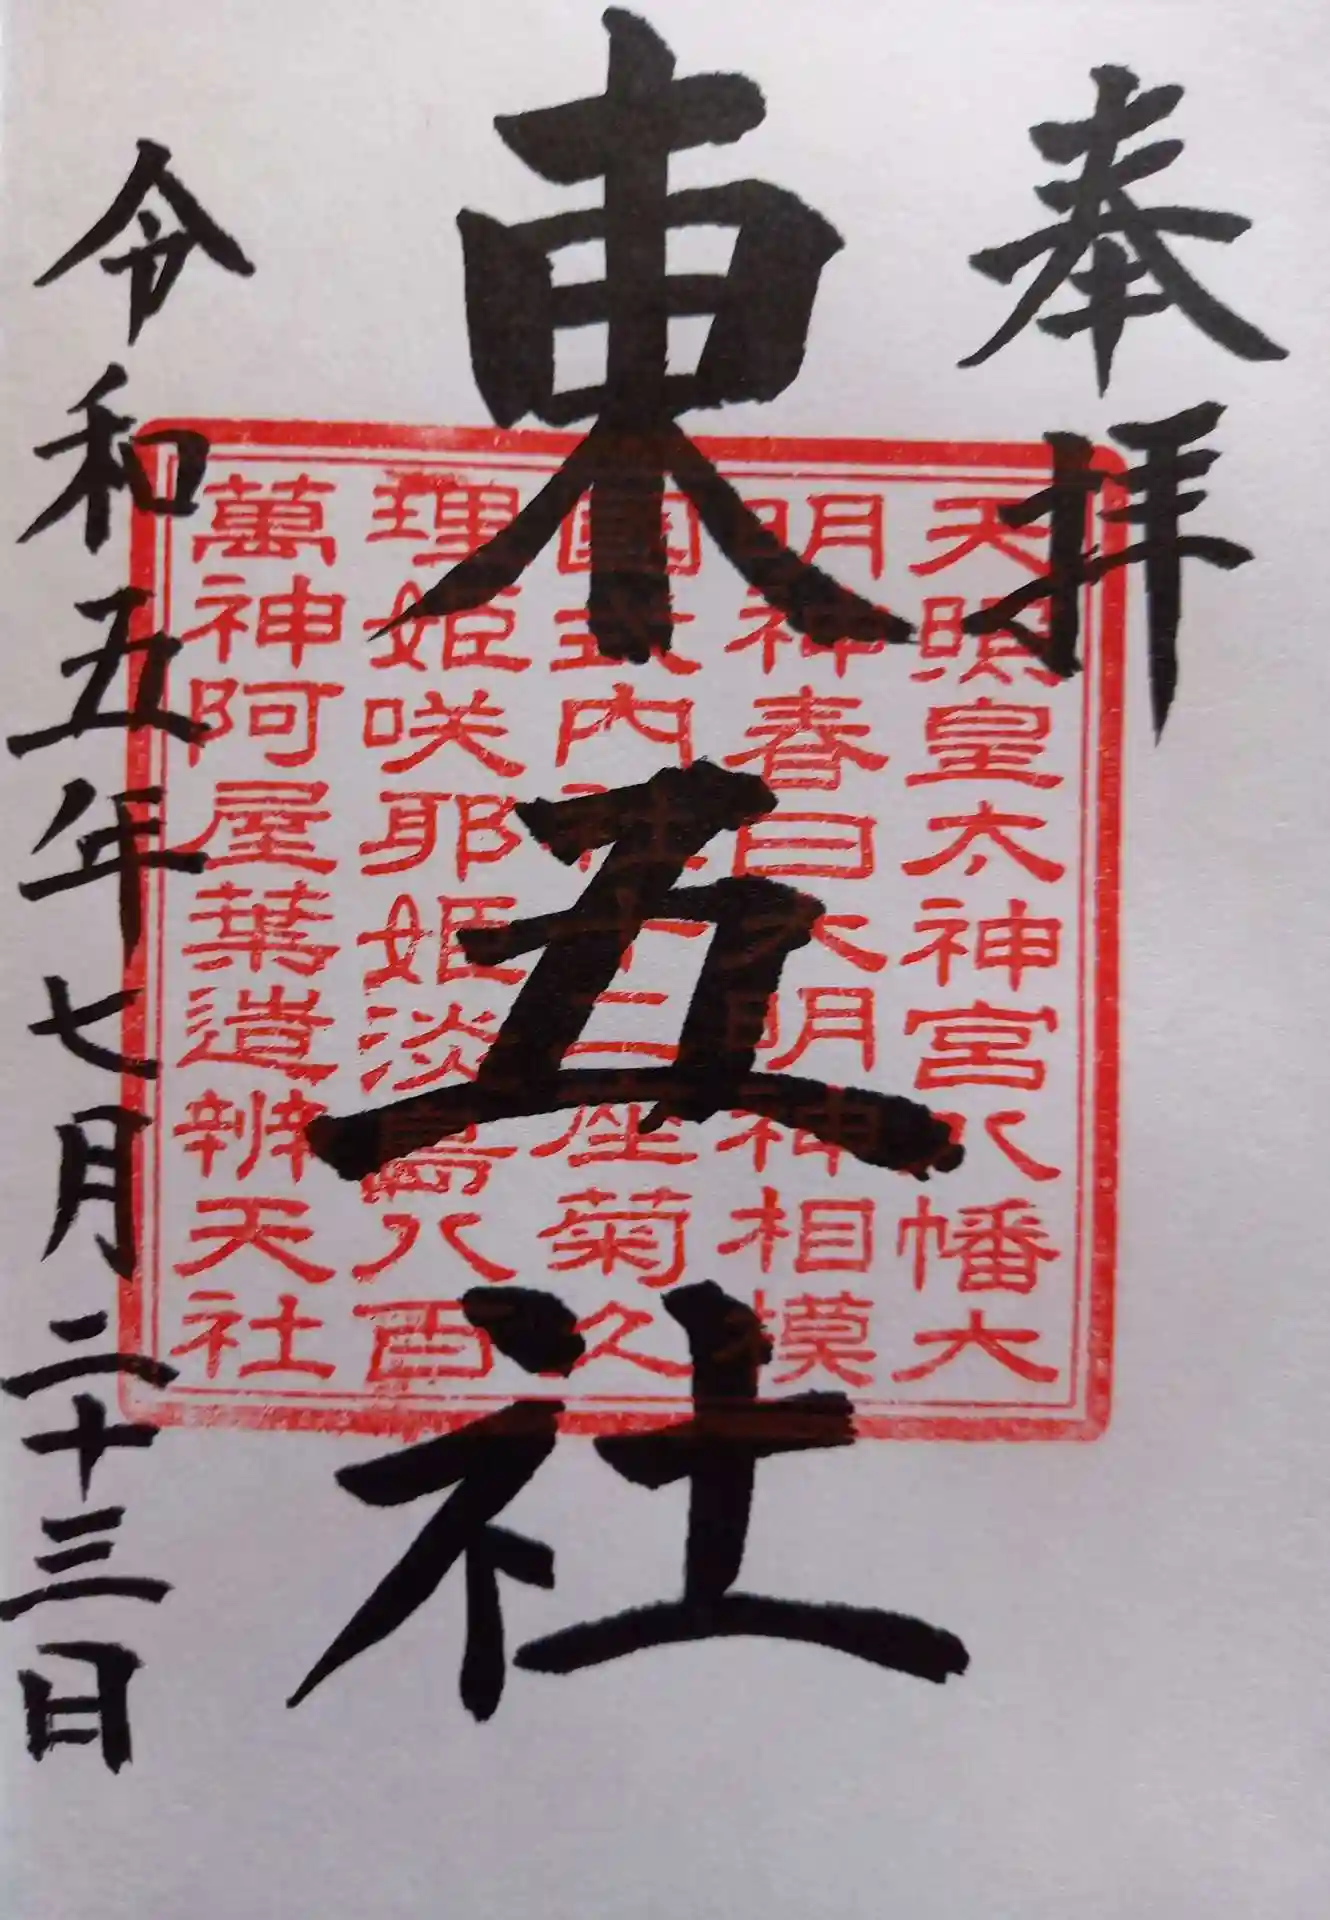 奉拝
東五社
天照皇太神宮八幡大
明神春日大明神相模
國式内社十三座菊久
理姫咲耶姫淡島八百
萬神阿屋葉造辨天社
令和五年七月二十三日